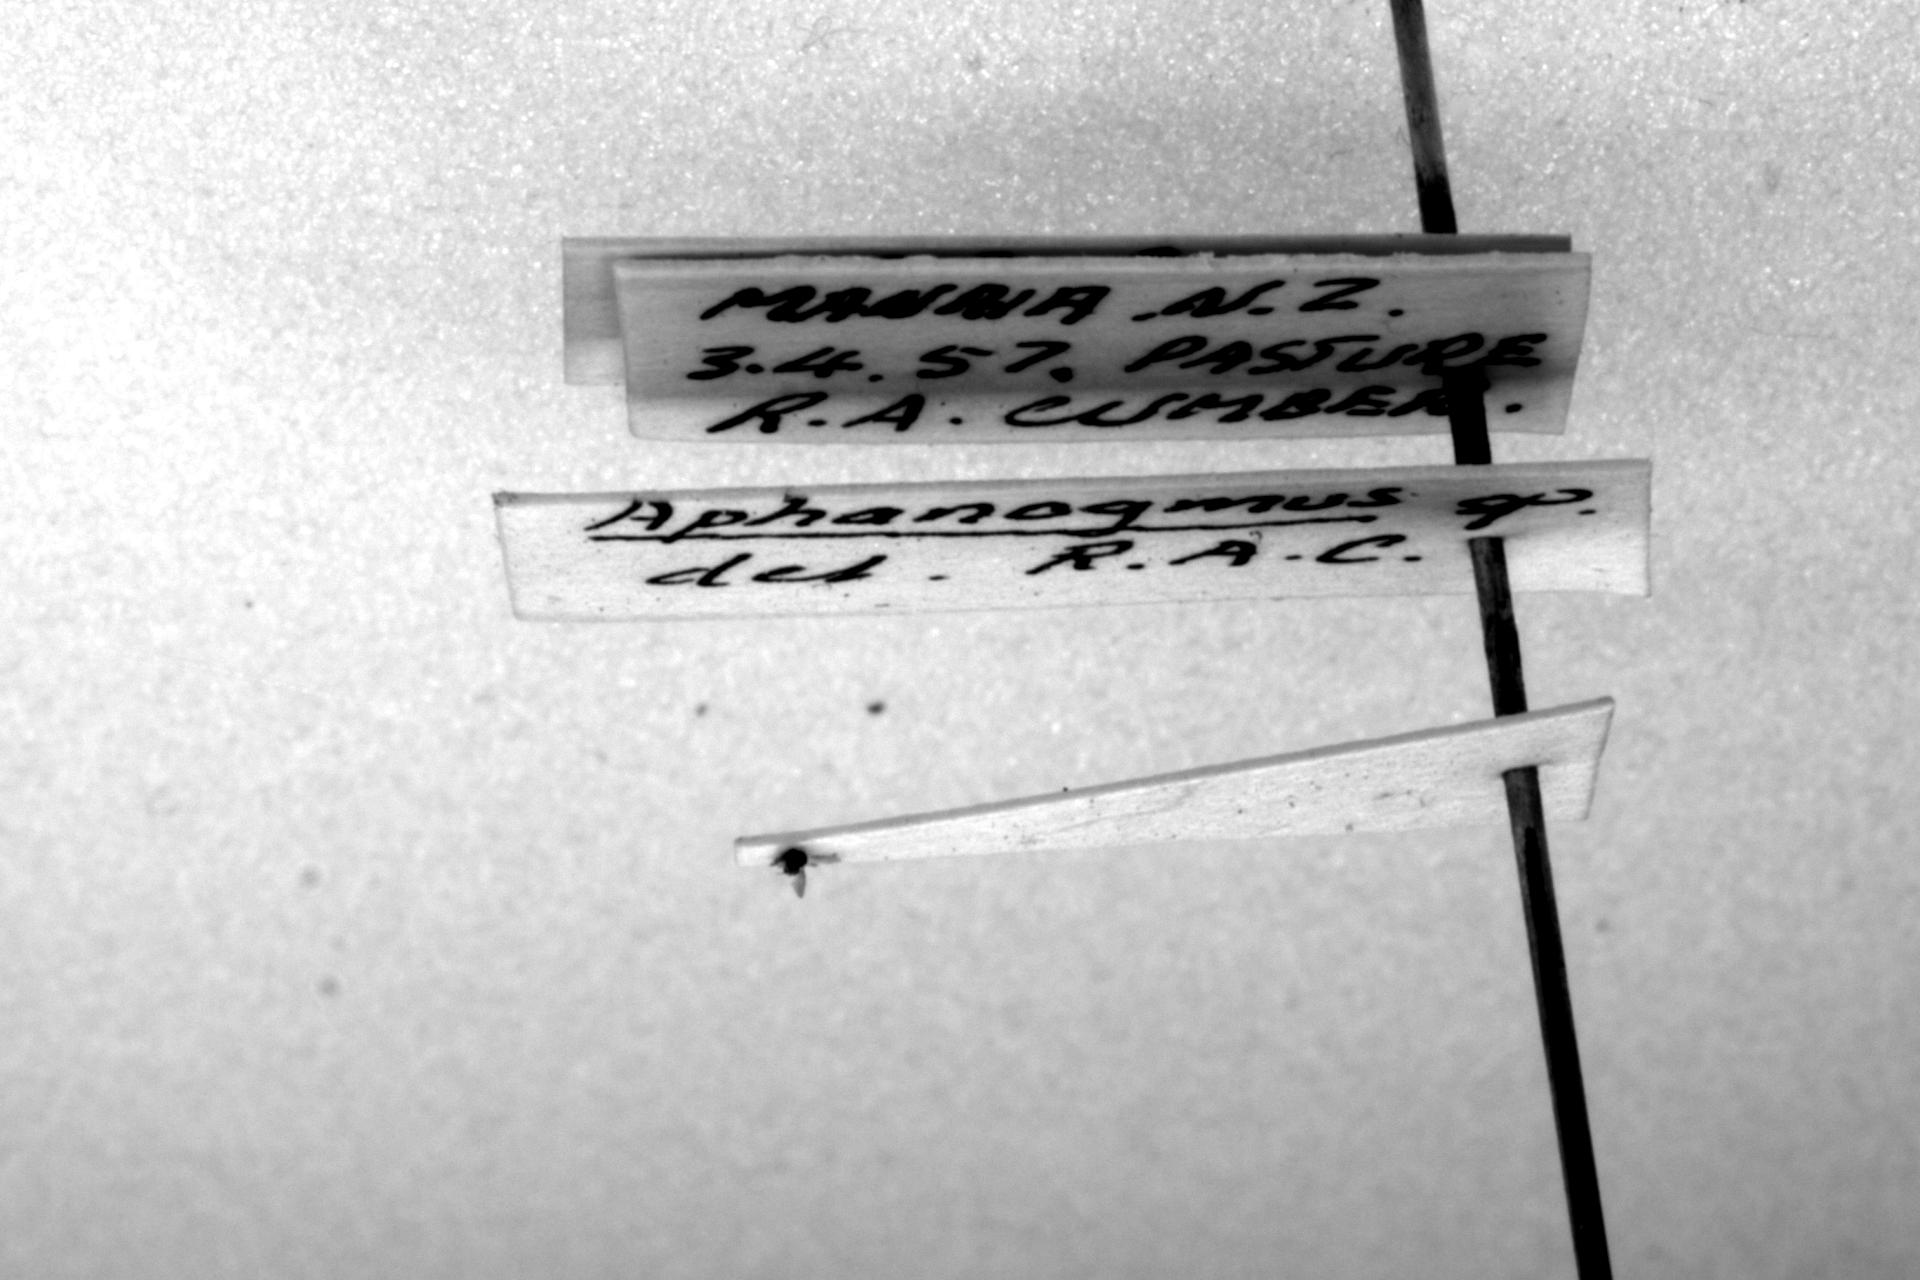 MANAIA . N.Z.
3.4.57. PASTURE
R.A. CUMBER.
Aphanogmus sp.
det. R.A.C.